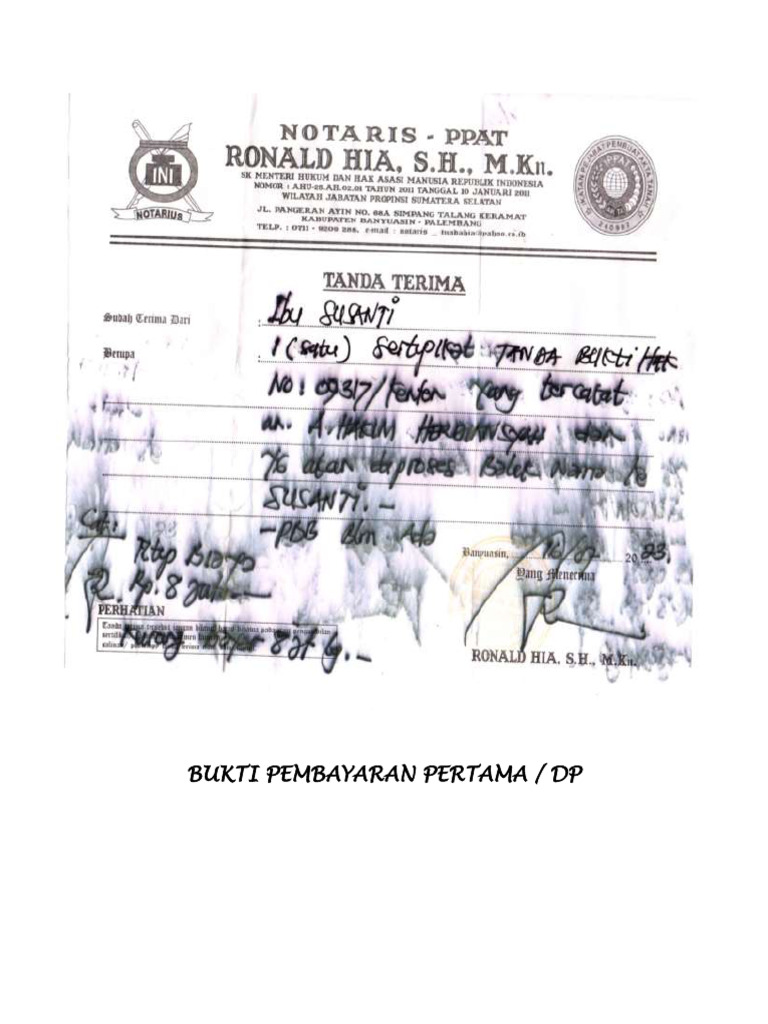 NOTARIS - PPAT
RONALD HIA, S.H., M.Kn.
SK MENTERI HUKUM DAN HAK ASASI MANUSIA REPUBLIK INDONESIA
NOMOR : AHU-28.AH.02.01 TAHUN 2011 TANGGAL 10 JANUARI 2011
WILAYAH JABATAN PROPINSI SUMATERA SELATAN
JL. PANGERAN AYIN NO. 68A SIMPANG TALANG KERAMAT
KABUPATEN BANYUASIN - PALEMBANG
TELP. : 0711 - 9200 288, e-mail : notaris
INI
NOTARIUS
IPPAT
TANDA TERIMA
Sudah Terima Dari : Ibu SUSANTI
Berupa : 1 (satu) Sertipikat TANDA BUKTI HAK
No : 09317/Kenten yang tercatat
an. A. HAKIM HERDIANSYAH dan
yg akan diproses Balik Nama ke
SUSANTI. -
- PBB Blm Ada
Cat :
Rp. 8 Juta
Banyuasin, 2023.
Yang Menerima
PERHATIAN
RONALD HIA, S.H., M.Kn.
BUKTI PEMBAYARAN PERTAMA / DP